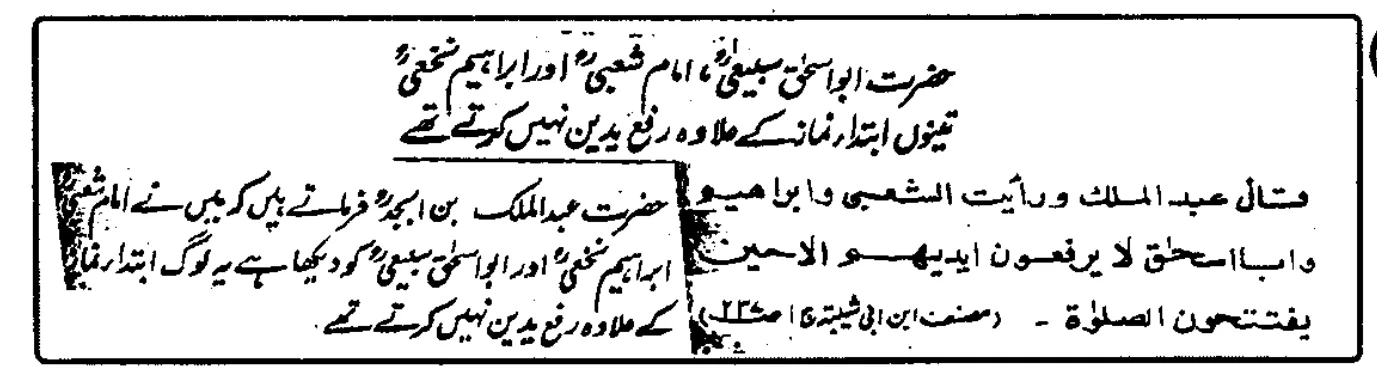 حضرت ابواسحٰق سبیعیؒ، امام شعبیؒ اور ابراہیم نخعیؒ
تینوں ابتداءِ نماز کے علاوہ رفع یدین نہیں کرتے تھے
قال عبد الملك ورأيت الشعبى وابراهيم
وابااسحٰق لا يرفعون ايديهم الاحين
يفتتحون الصلوٰة ۔ (مصنف ابن ابی شیبۃ ج۱ ص۲۳۷)
حضرت عبدالملک بن ابجرؒ فرماتے ہیں کہ میں نے امام شعبیؒ
ابراہیم نخعیؒ اور ابواسحٰق سبیعیؒ کو دیکھا ہے یہ لوگ ابتداءِ نماز
کے علاوہ رفع یدین نہیں کرتے تھے۔